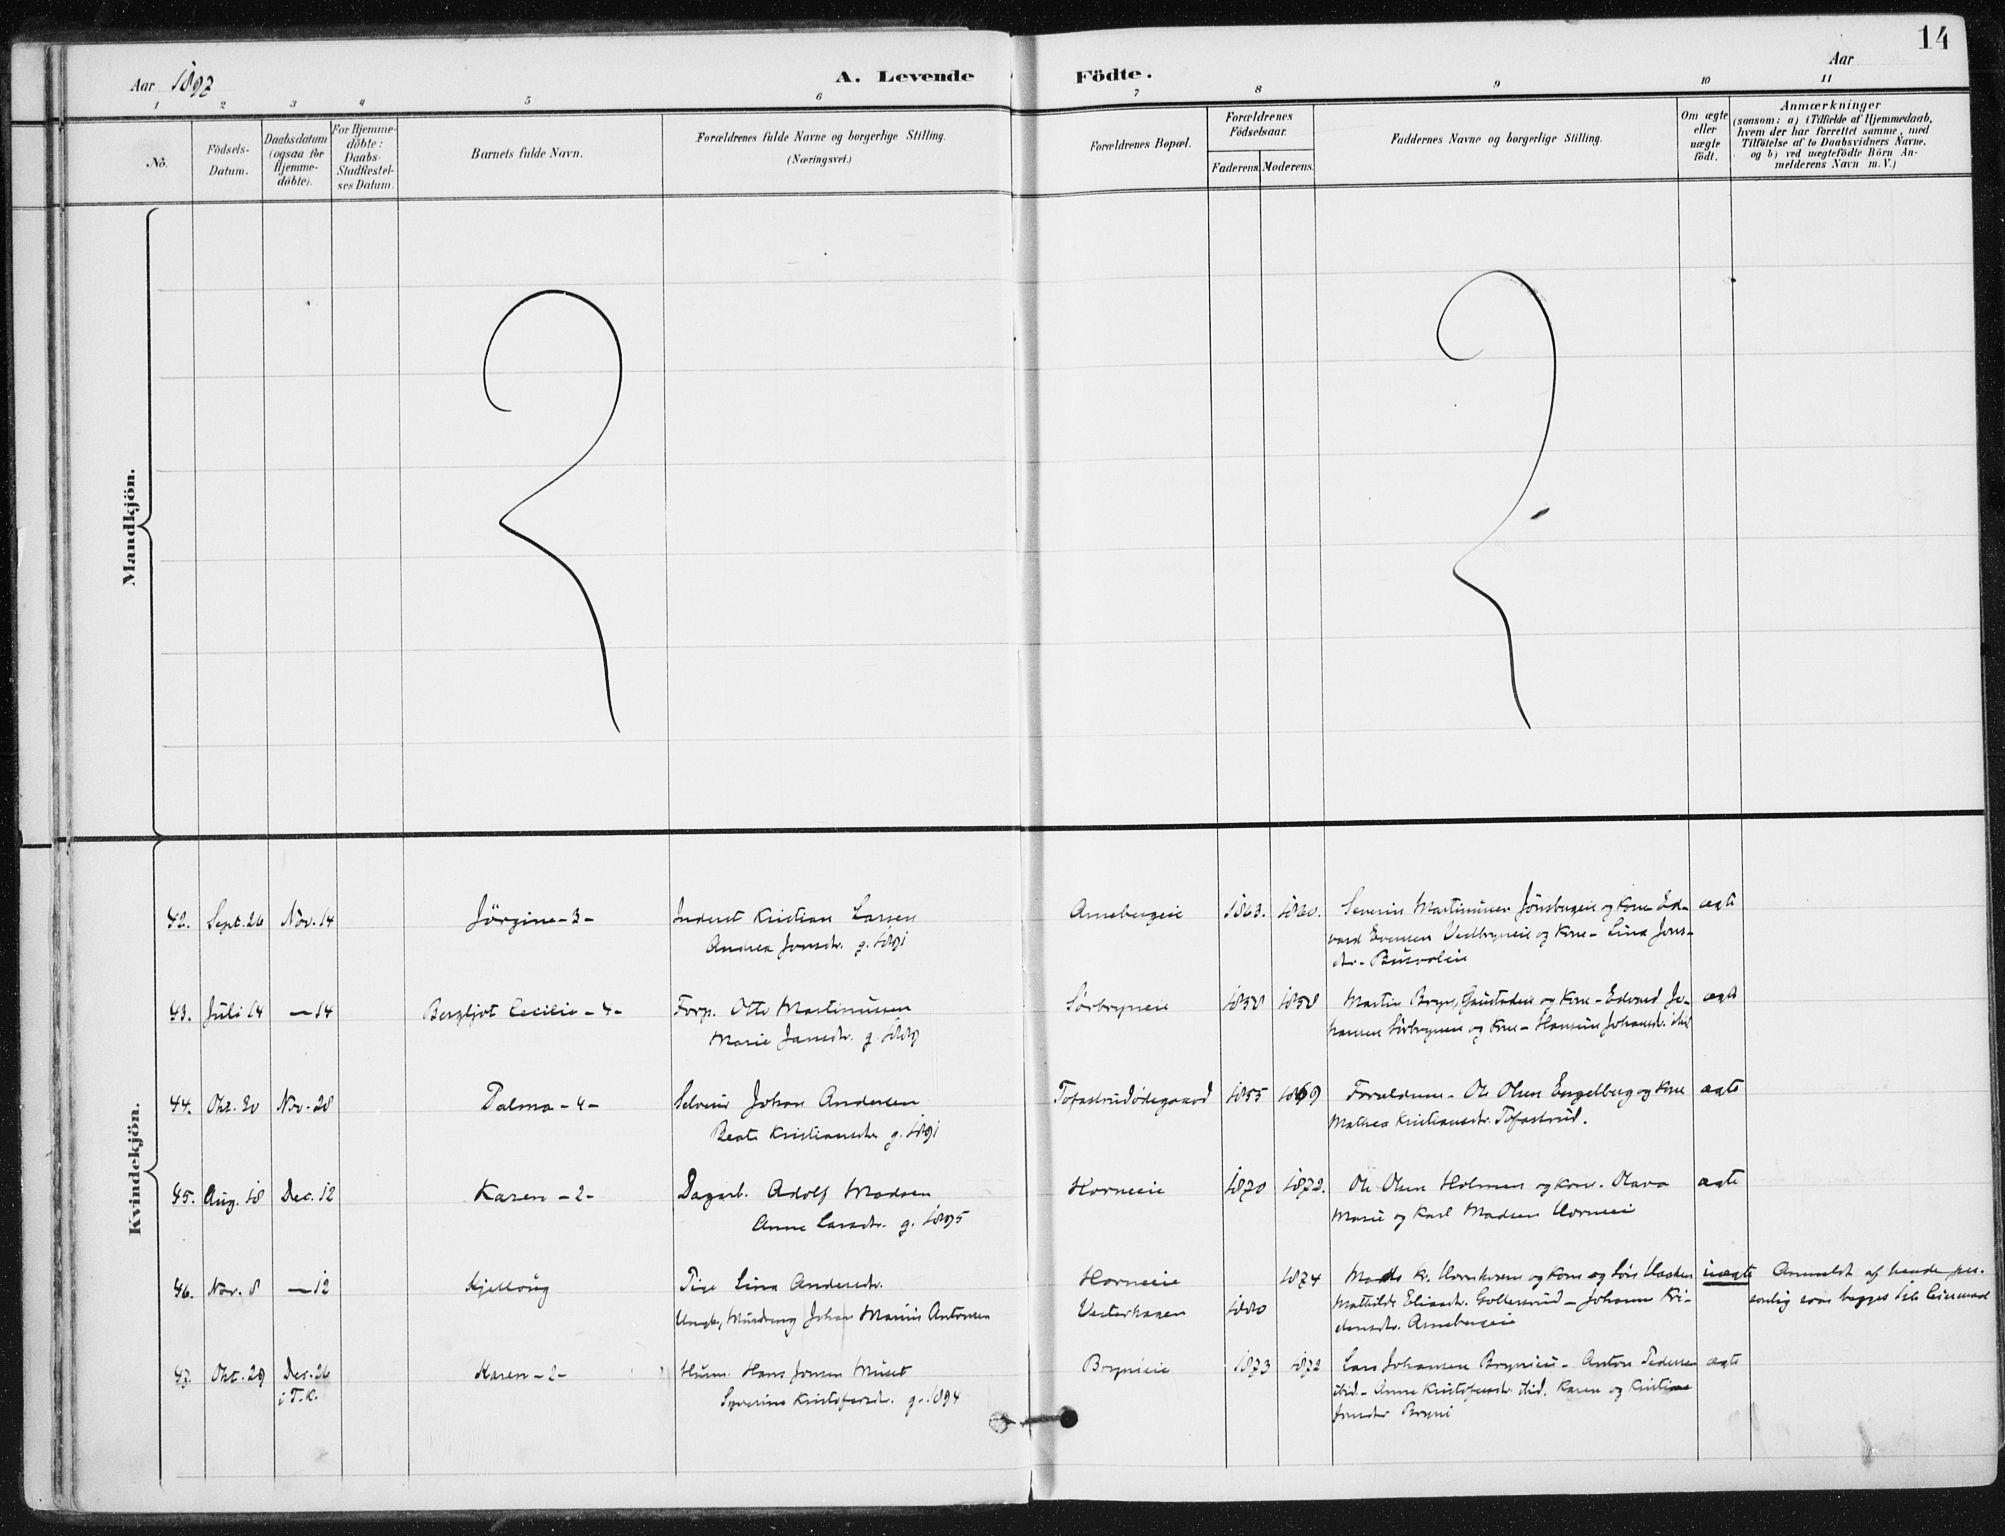 14
Aar 1897
A. Levende Födte.
Aar
1 2 3 4 5 6 7 8 9 10 11
No.
Födsels-
Datum.
Daabsdatum
(ogsaa for
Hjemme-
döbte).
For Hjemme-
döbte:
Daabs-
Stadfæstel-
ses Datum.
Barnets fulde Navn.
Forældrenes fulde Navne og borgerlige Stilling.
(Næringsvei.)
Forældrenes Bopæl.
Forældrenes
Födselsaar.
Faderens. Moderens.
Faddernes Navne og borgerlige Stilling.
Om ægte
eller
uægte
födt.
Anmærkninger
(saasom: a) i Tilfælde af Hjemmedaab,
hvem der har forrettet samme, med
Tilföielse af to Daabsvidners Navne.
og b) ved uægtefödte Börn An-
melderens Navn m. V.)
Mandkjön.
Kvindekjön.
42. Sept. 26 Nov. 14 Jörgine - 3 - Inderst Kristian Larsen
Andrea Jonsdr. g. 1891
Arnebergeie 1863. 1860.
Severin Martinusen Jönsbergeie og Kone Ed-
vard Evensen Vestbryneie og Kone - Lina Jons-
dr.
ægte
43. Juli 14 — 14 Bergljot Cecilie - 4 - Forp. Otto Martinusen
Marie Jansdr. g.
Sörbryneie 1858 1858
Martin Bryn, og Kone - Edvard Jo-
hansen Sörbryneie og Kone - Johansdr. ibid
ægte
44. Okt. 20 Nov. 28 Palma - 4 - Selveier Johan Andersen
Beate Kristiansdr. g. 1891
Tofastrudødegaard 1855 1869
Forældrene - Ole Olsen Engelberg og Kone
Mathea Kristiansdr. Tofastrud.
ægte
45. Aug. 18 Dec. 12 Karen - 2 - Dagarb. Adolf Madsen
Anne Larsdr. g. 1895
Horneeie 1870 1872.
Ole Olsen Holmen og Kone. Olava
Marie og Karl Madsen Horneeie
ægte
46. Nov. 8 — 12 Kjellaug Pige Lina Andersdr.
Ungk. Johan Marius Antonsen
Horneeie 1874
Vesterhagen 1880
Mads K. og Kone og
Mathilde Eliasdr. Goldersrud - Johanne Kri-
stensdr. Arnebergeie
uægte
Anmeldt af hende per-
sonlig som begges 1ste Leiermaal
47. Okt. 29 Dec. 26
i T.K.
Karen - 2 - Husm. Hans Jonsen
Syverine Kristofersdr. g. 1894
Bryneeie 1873 1872
Lars Johansen Bryneeie - Anton Pedersen
ibid - Anne Kristofersdr. ibid. Karen og Kristine
Jonsdr Bryni
ægte